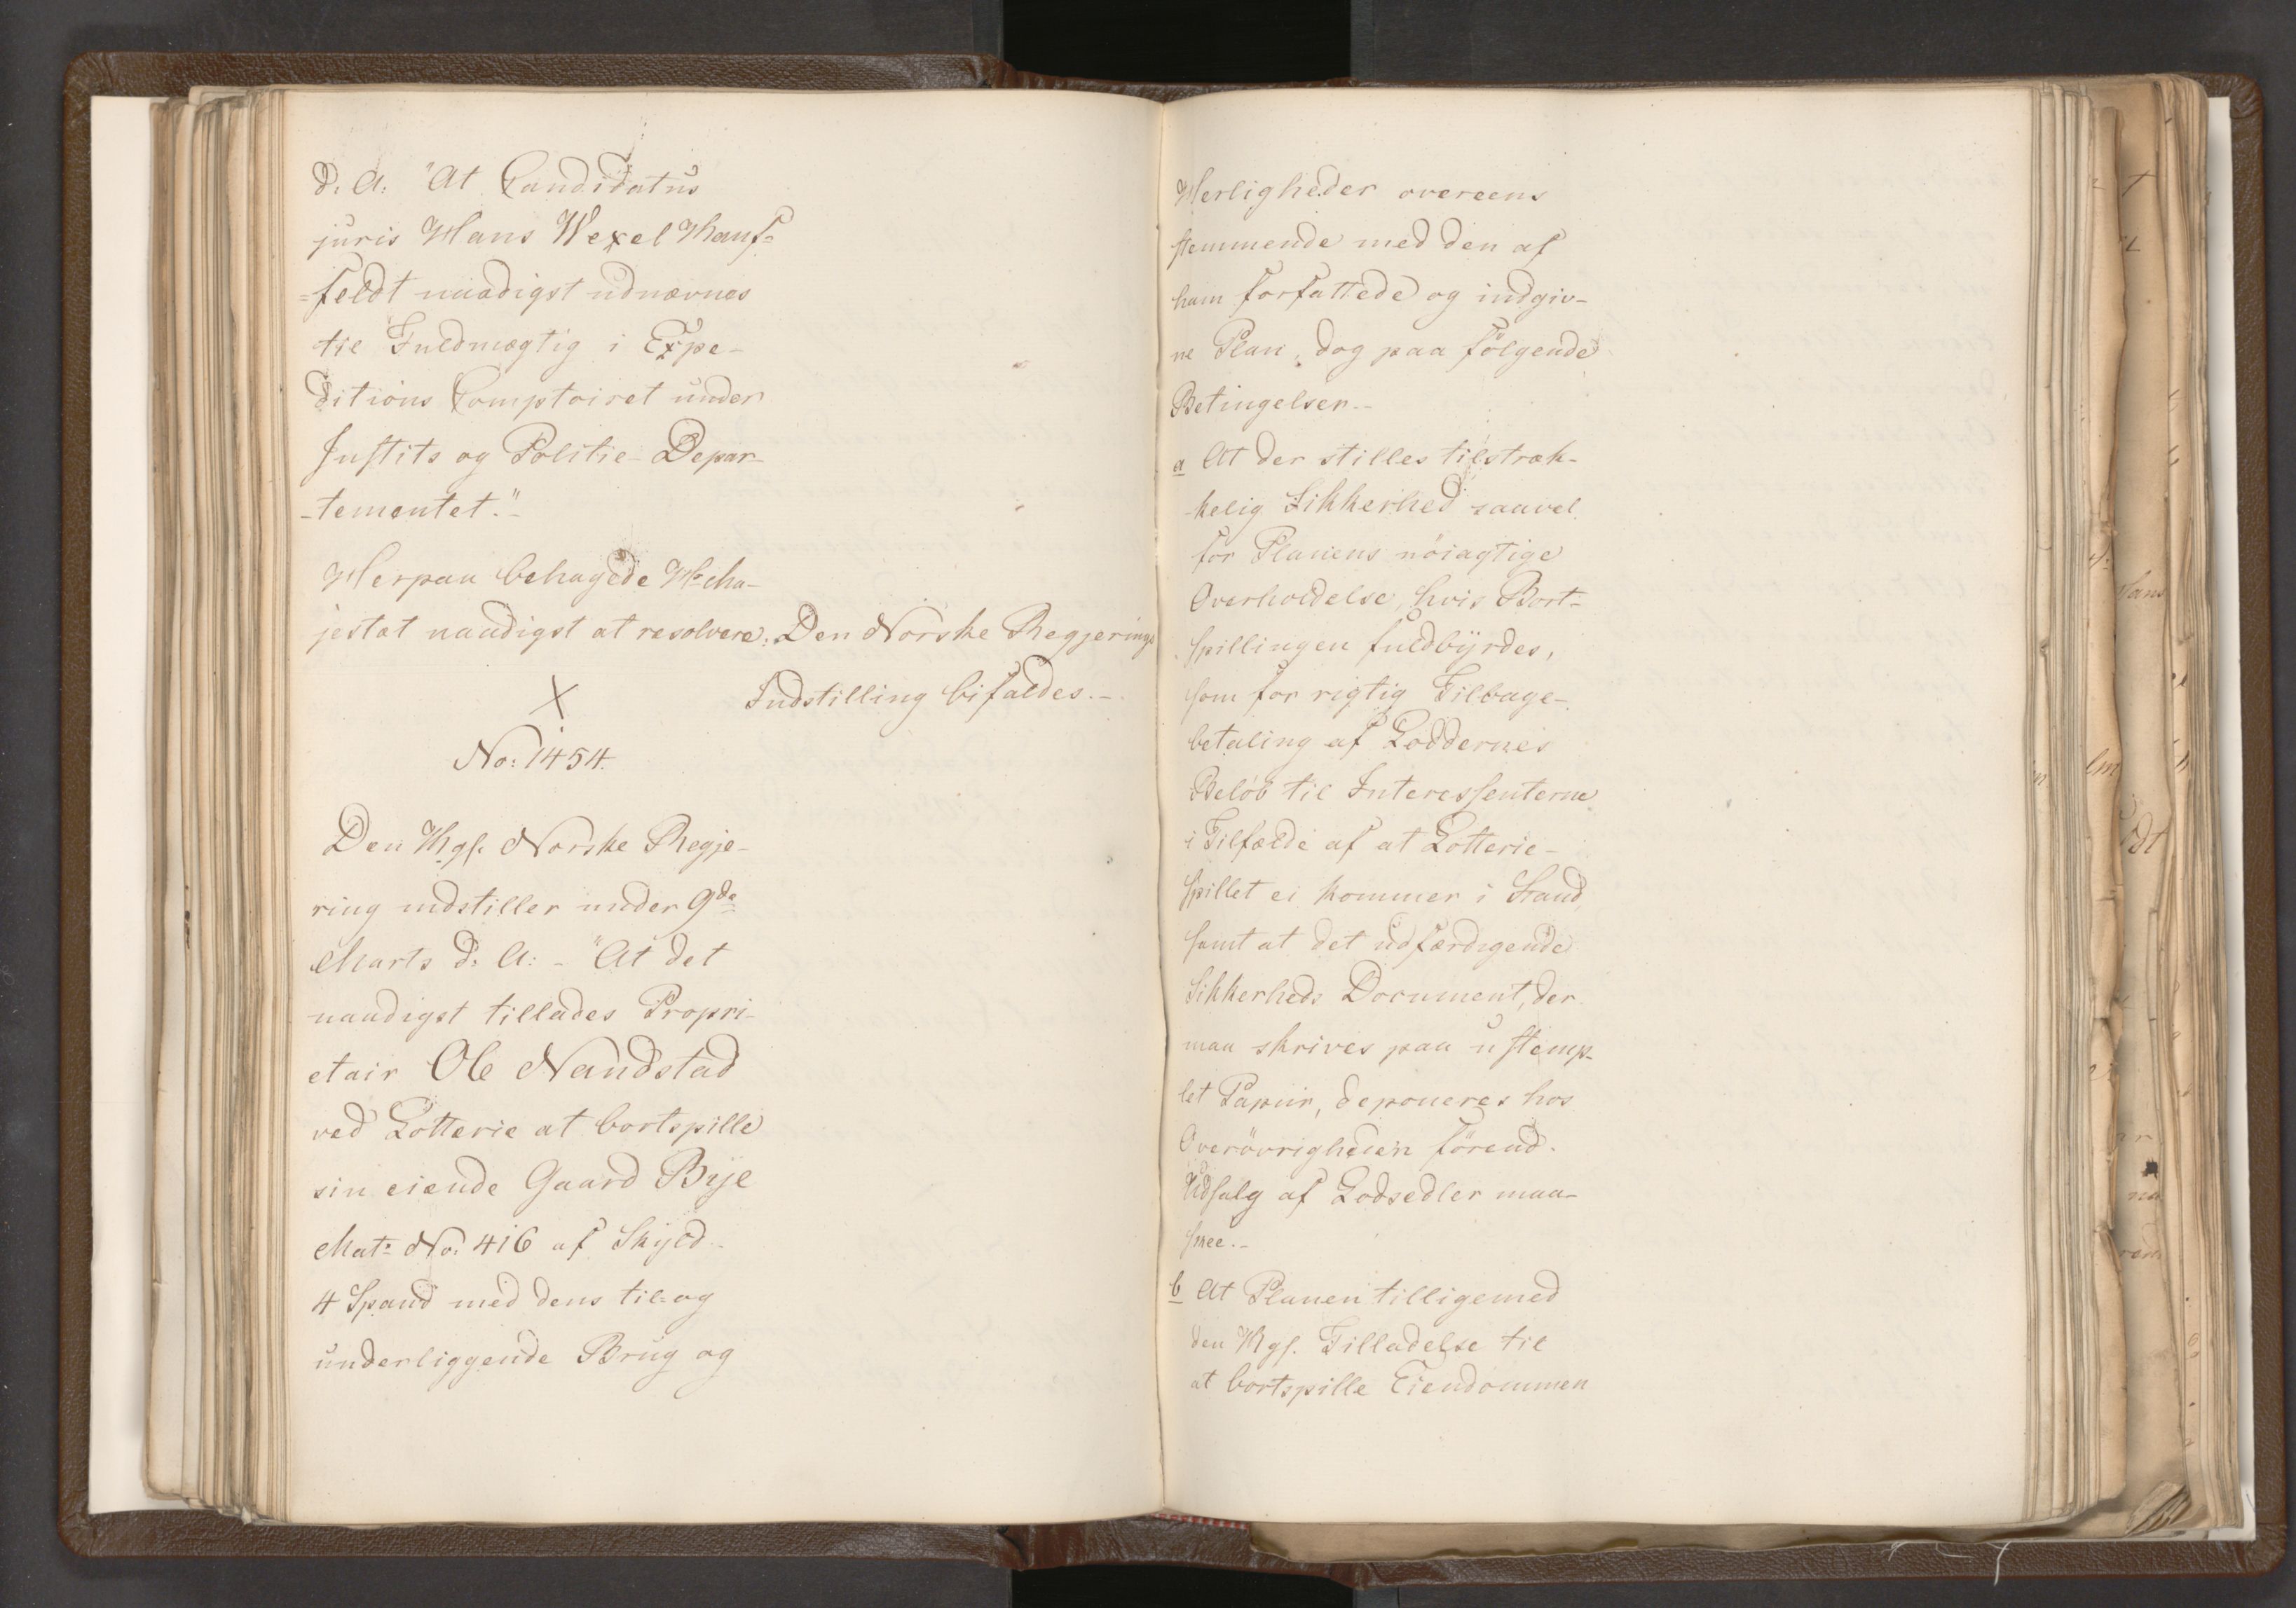 d: A: "At Candidatus
juris Hans Wexel Hans=
=feldt naadigst udnævnes
til Fuldmægtig i Expe-
ditions Comptoiret under
Justits og Politie-Depar-
-tementet."-
Herpaa behagede Hs Ma-
jestæt naadigst at resolvere: Den Norske Regjerings
Indstilling bifaldes.-
No: 1454.
Den Kgs. Norske Regje-
ring indstiller under 9de
Marts d: A: - "At det
naadigst tillades Propri-
etair Ole Nandstad
ved Lotterie at bortspille
sin eiende Gaard Bye
Mat: No: 416 af Skyld
4 Spand med dens til- og
underliggende Brug og
Herligheder overeens
stemmende med den af
ham forfattede og indgiv-
ne Plan, dog paa følgende
Betingelser.-
a At der stilles tilstræk-
kelig Sikkerhed saavel
for Planens nöiagtige
Overholdelse, hvis Bort-
spillingen fuldbyrdes,
som for rigtig Tilbage-
betaling af Loddernes
Beløb til Interessenterne
i Tilfælde af at Lotterie-
spillet ei kommer i Stand,
samt at det udfærdigende
Sikkerheds Document, der
maa skrives paa ustemp-
let Papiir, deponeres hos
Overøvrigheden førend
Udsalg af Lodsedler maa
skee.-
b At Planen tilligemed
den Kgs. Tilladelse til
at bortspille Eiendommen